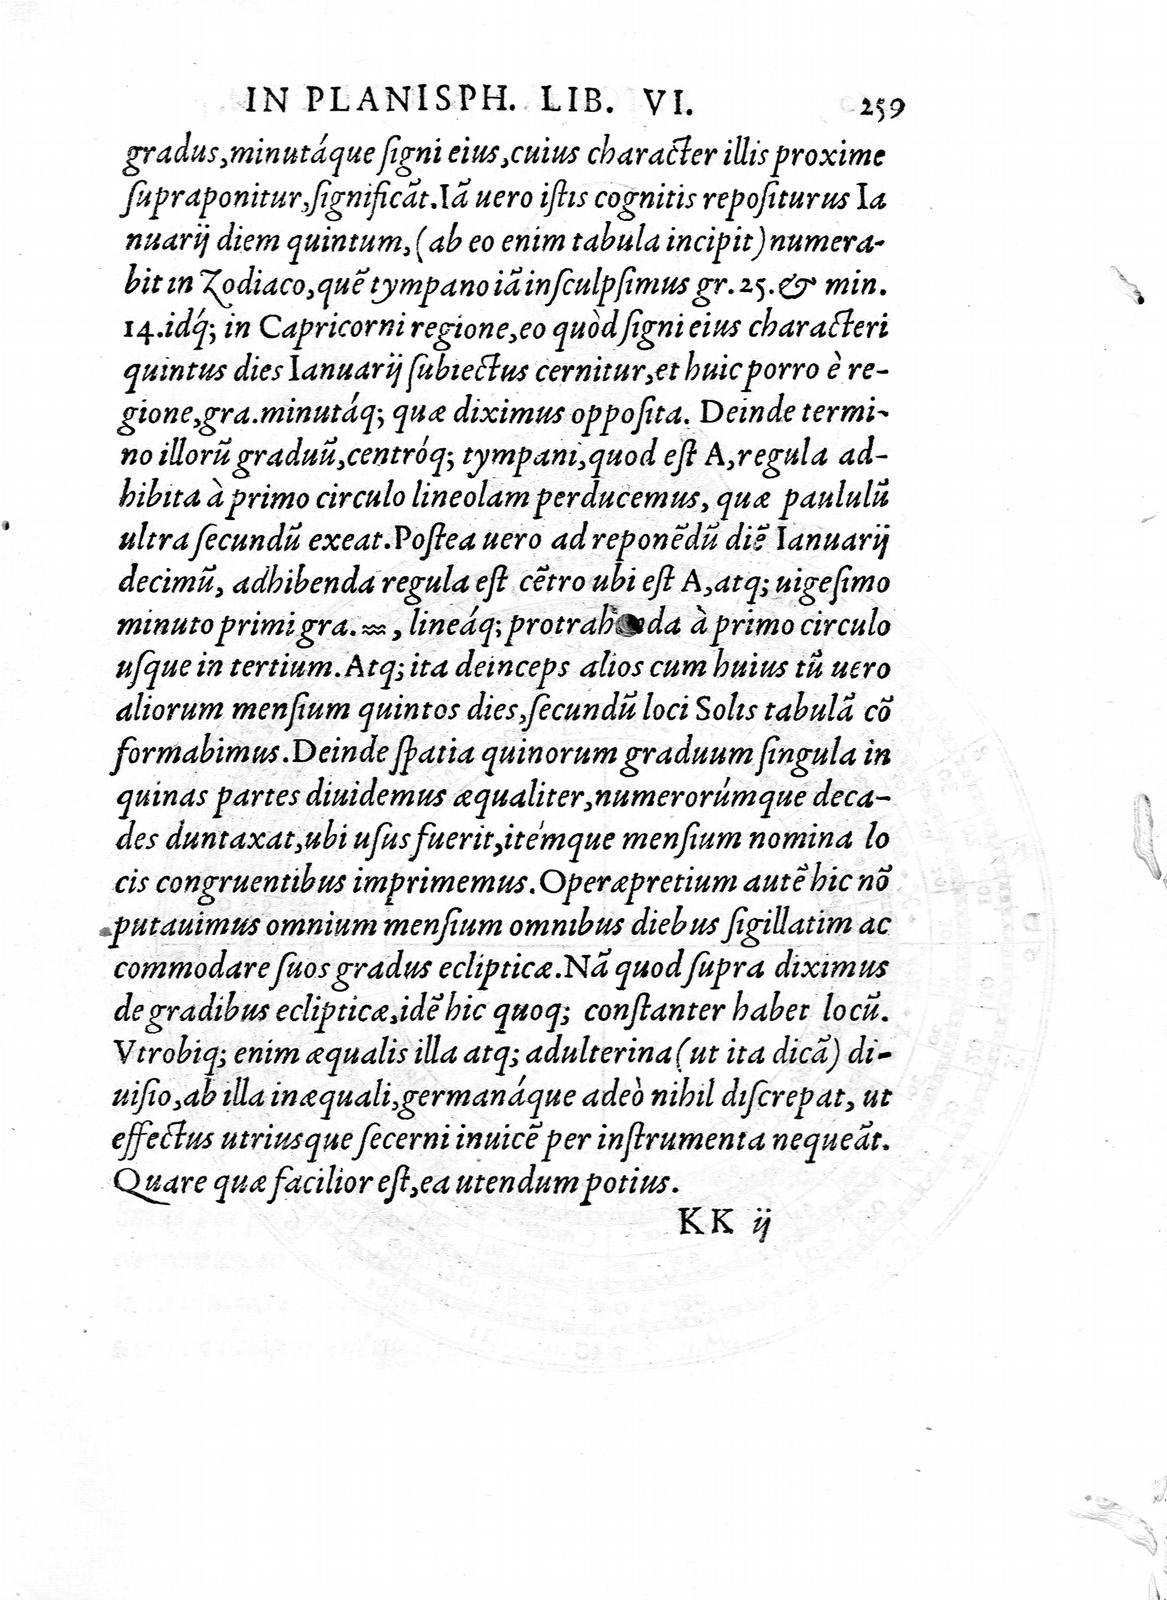 IN PLANISPH. LIB. VI. 259
gradus,minutáque ſigni eius,cuius character illis proxime
ſupraponitur,ſignificãt.Iã uero iſtis cognitis repoſiturus Ia
nuarij diem quintum,(ab eo enim tabula incipit)numera-
bit in Zodiaco,quẽ tympano iã inſculpſimus gr.25.& min.
14.idq́; in Capricorni regione,eo quòd ſigni eius characteri
quintus dies Ianuarij ſubiectus cernitur,et huic porro è re-
gione,gra.minutáq; quæ diximus oppoſita. Deinde termi-
no illorũ graduũ,centróq; tympani,quod eſt A,regula ad-
hibita à primo circulo lineolam perducemus, quæ paululũ
ultra ſecundũ exeat.Poſtea uero ad reponẽdũ diẽ Ianuarij
decimũ, adhibenda regula eſt cẽtro ubi eſt A,atq; uigeſimo
minuto primi gra.♒, lineáq; protrahenda à primo circulo
uſque in tertium.Atq; ita deinceps alios cum huius tũ uero
aliorum menſium quintos dies,ſecundũ loci Solis tabulã cõ
formabimus.Deinde ſpatia quinorum graduum ſingula in
quinas partes diuidemus æqualiter,numerorúmque deca-
des duntaxat,ubi uſus fuerit,itémque menſium nomina lo
cis congruentibus imprimemus.Operæpretium autẽ hic nõ
putauimus omnium menſium omnibus diebus ſigillatim ac
commodare ſuos gradus eclipticæ.Nã quod ſupra diximus
de gradibus eclipticæ,idẽ hic quoq; conſtanter habet locũ.
Vtrobiq; enim æqualis illa atq; adulterina(ut ita dicã) di-
uiſio,ab illa inæquali,germanáque adeò nihil diſcrepat, ut
effectus utriusque ſecerni inuicẽ per inſtrumenta nequeãt.
Quare quæ facilior eſt,ea utendum potius.
KK ij